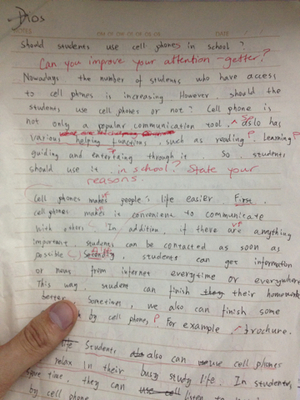 Dios
Should students use cell phones in school?
Can you improve your attention-getter?
Nowadays the number of students who have access
to cell phones is increasing However should the
students use cell phones or not? Cell phone is
not only a popular communication tool, ^ aslo has
various helping functions, such as reading, P learning, P
guiding and entertaing through it. So students
should use it in school? State your
reasons
Cell phones makes people's life easier First,
cell phones makes is convenience to communicate
with others. In addition, if there are anything
importance, students can be contacted as soon as
possible. Secendly, students can get information
or news from internet everytime or everywhere
This way student can finish their homework
better. Sometimes, we also can finish some
by cell phone, P For example brochure.
Students also can use cell phones
relax in their busy study life. In students'
time, they can listen to
by cell phone